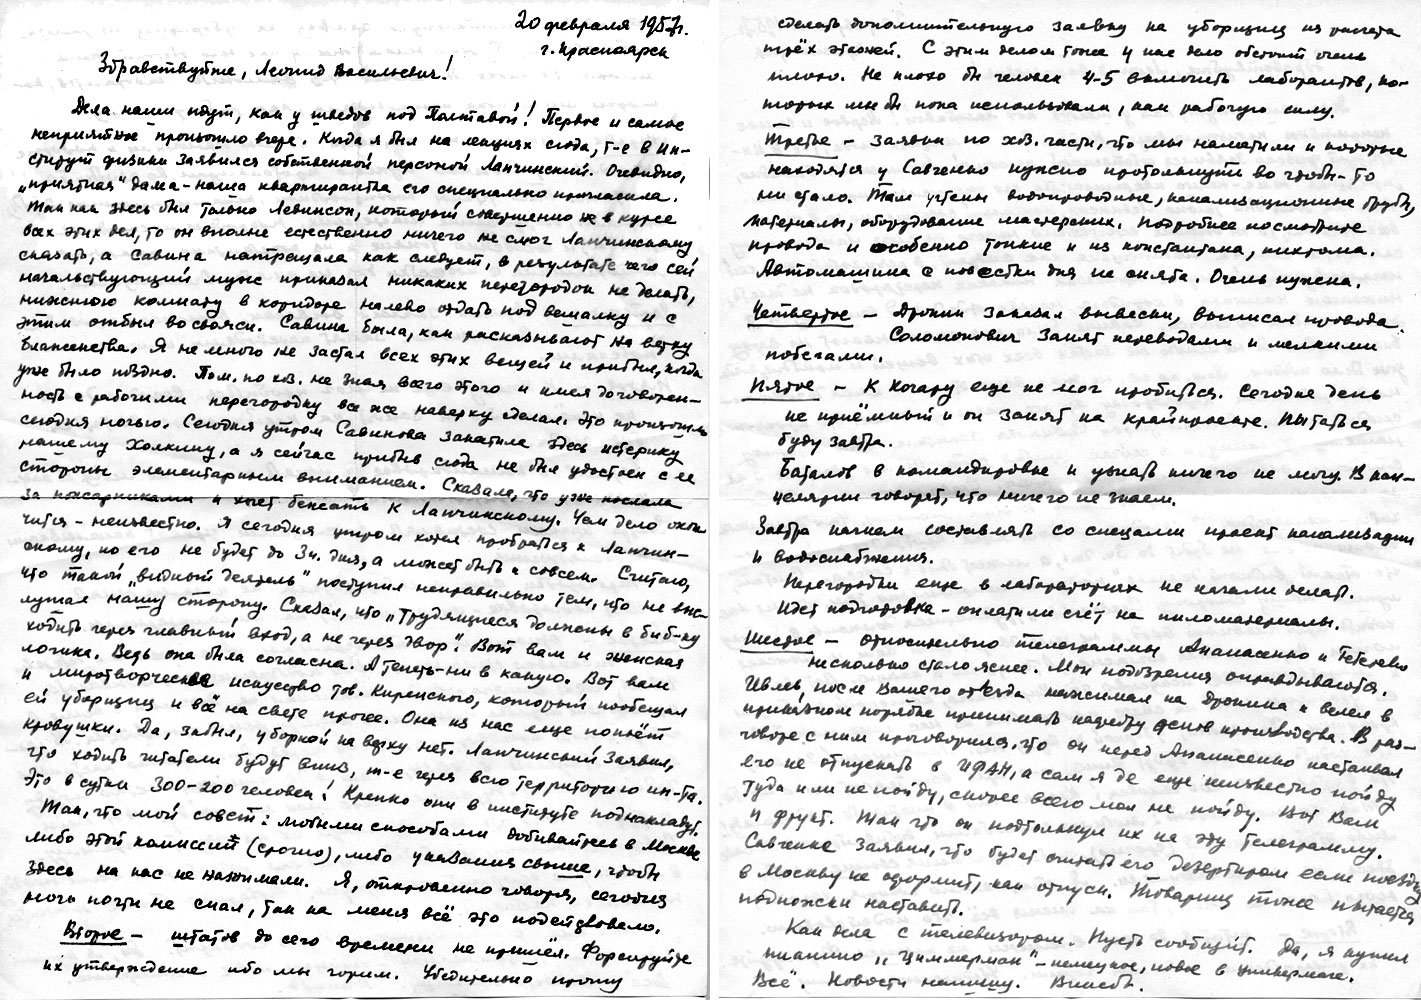 20 февраля 1957г.
г. Красноярск
Здравствуйте, Леонид Васильевич!
Дела наши идут, как у шведов под Полтавой! Первое и самое
неприятное произошло вчера. Когда я был на лекциях сюда, т-е в Ин-
ститут физики заявился собственной персоной Лапчинский. Очевидно,
„приятная" дама - наша квартирантка его специально пригласила.
Так как здесь был только Левинсон, который совершенно не в курсе
всех этих дел, то он вполне естественно ничего не смог Лапчинскому
сказать, а Савина натрещала как следует, в результате чего сей
начальствующий муж приказал никаких перегородок не делать,
нижнюю комнату в коридоре налево отдать под вешалку и с
этим отбыл восвояси. Савина была, как рассказывают на верху
блаженства. Я не много не застал всех этих вещей и прибыл, когда
уже было поздно. Пом. по хоз. не зная всего этого и имея договорен-
ность с рабочими перегородку все же наверху сделал. Это произошло
сегодня ночью. Сегодня утром Савинова закатила здесь истерику
нашему Холкину, а я сейчас прибыв сюда не был удостоен с ее
стороны элементарным вниманием. Сказала, что уже послала
за пожарниками и хочет бежать к Лапчинскому. Чем дело окон
чится - неизвестно. Я сегодня утром хотел пробраться к Лапчин-
скому, но его не будет до 3ч. дня, а может быть и совсем. Считаю,
что такой „видный деятель" поступил неправильно тем, что не выс-
лушал нашу сторону. Сказал, что „Трудящиеся должны в биб-ку
ходить через главный вход, а не через двор". Вот вам и женская
логика. Ведь она была согласна. А теперь - ни в какую. Вот вам
и миротворческое искусство тов. Киренского, который пообещал
ей уборщиц и всё на свете прочее. Она из нас еще попьёт
кровушки. Да, забыл, уборной на верху нет. Лапчинский заявил,
что ходить читатели будут вниз, т-е через всю территорию ин-та.
Это в сутки 300-200 человек! Крепко они в институте поднакладут.
Так, что мой совет: любыми способами добивайтесь в Москве
либо этой комиссии (срочно), либо указания свыше, чтобы
здесь на нас не нажимали. Я, откровенно говоря, сегодня
ночь почти не спал, так на меня всё это подействовало.
Второе - штатов до сего времени не пришёл. Форсируйте
их утверждение ибо мы горим. Убедительно прошу
сделать дополнительную заявку на уборщиц из расчета
трёх этажей. С этим делом тоже у нас дело обстоит очень
плохо. Не плохо бы человек 4-5 включить лаборантов, ко-
торых мы бы пока использовали, как рабочую силу.
Третье - заявки по хоз. части, что мы наметили и которые
находятся у Савченко нужно протолкнуть во чтобы-то
ни стало. Там учтены водопроводные, канализационные трубы,
материалы, оборудование мастерских. Подробнее посмотрите
провода и особенно тонкие и из константана, нихрома.
Автомашина с повестки дня не снята. Очень нужна.
Четвертое - Дрокин заказал вывески, выписал провода.
Соломонович занят переводами и мелкими
побегами.
Пятое - К Когару еще не мог пробиться. Сегодня день
не приёмный и он занят на крайпроекте. Пытаться
буду завтра.
Баталов в командировке и узнать ничего не могу. В кан-
целярии говорят, что ничего не знаем.
Завтра начнем составлять со спецами проект канализации
и водоснабжения.
Перегородки еще в лабораториях не начали делать.
Идет подготовка - оплатили счёт на пиломатериалы.
Шестое - относительно телеграммы Апанасенко и Тетерево
несколько стало яснее. Мои подозрения оправдываются.
Ивлев, после вашего отъезда нажимал на Дрокина и велел в
приказном порядке принимать кафедру основ производства. В раз-
говоре с ним проговорился, что он перед Апанасенко настаивал
его не отпускать в ИФАН, а сам я де еще неизвестно пойду
туда или не пойду, скорее всего мол не пойду. Вот вам
и фрукт. Так что он подтолкнул их на эту телеграмму.
Савченке заявил, что будет считать его дезертиром если поезду
в Москву не оформит, как отпуск. Товарищ тоже пытается
подножки наставить.
Как дела с телевизором. Пусть сообщит. Да, я купил
пианино „Циммерман" - немецкое, новое в универмаге.
Всё. Новости напишу.